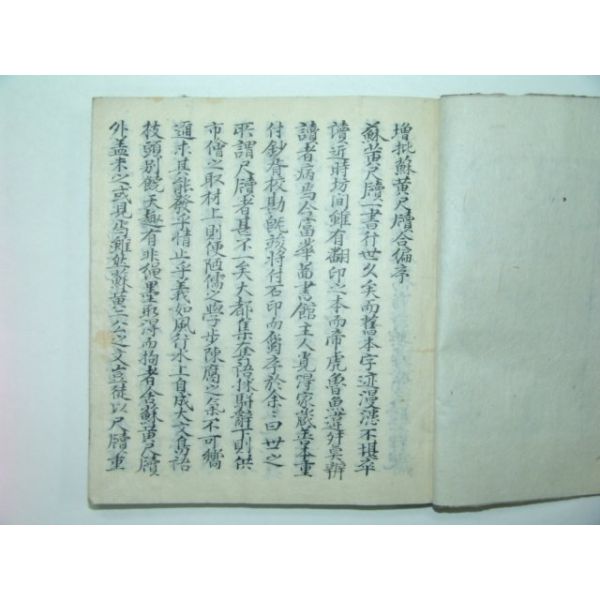 增批蘇黃尺牘合編序
蘇黃尺牘一書行世久矣而舊本字迹漫漶不堪卒
讀近時坊間雖有翻印之本而帝虎魯魚迷舛莫辨
讀者病焉今富華啚書館主人覓得家藏善本重
付鈔胥校勘旣竣將付石印而徵序於余余曰世之
所謂尺牘者甚不一矣大都集套語抹駢體下則供
市儈之取材上則便陋儒之學步陳腐之余不可嚮
邇求其能發乎情止乎義如風行水上自成大文烏語
枝頭別饒天趣有非繩墨所得而拘者舍蘇黃尺牘
外盖未之或見焉雖然蘇黃二公之文豈徒以尺牘重